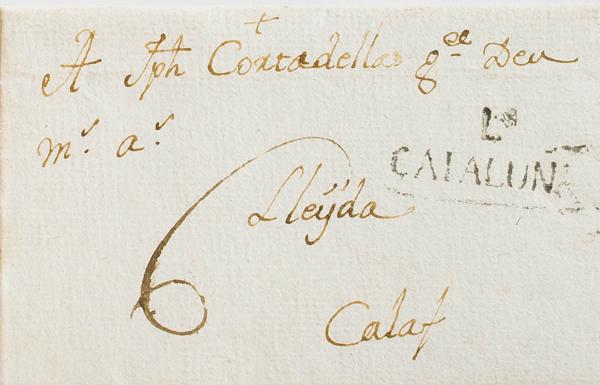 +
A Jph Cortadellas gˢ ᵉˡ Deu
mˢ. aˢ.
Lˢᵃ
CATALUÑA
6
Lleÿda
Calaf